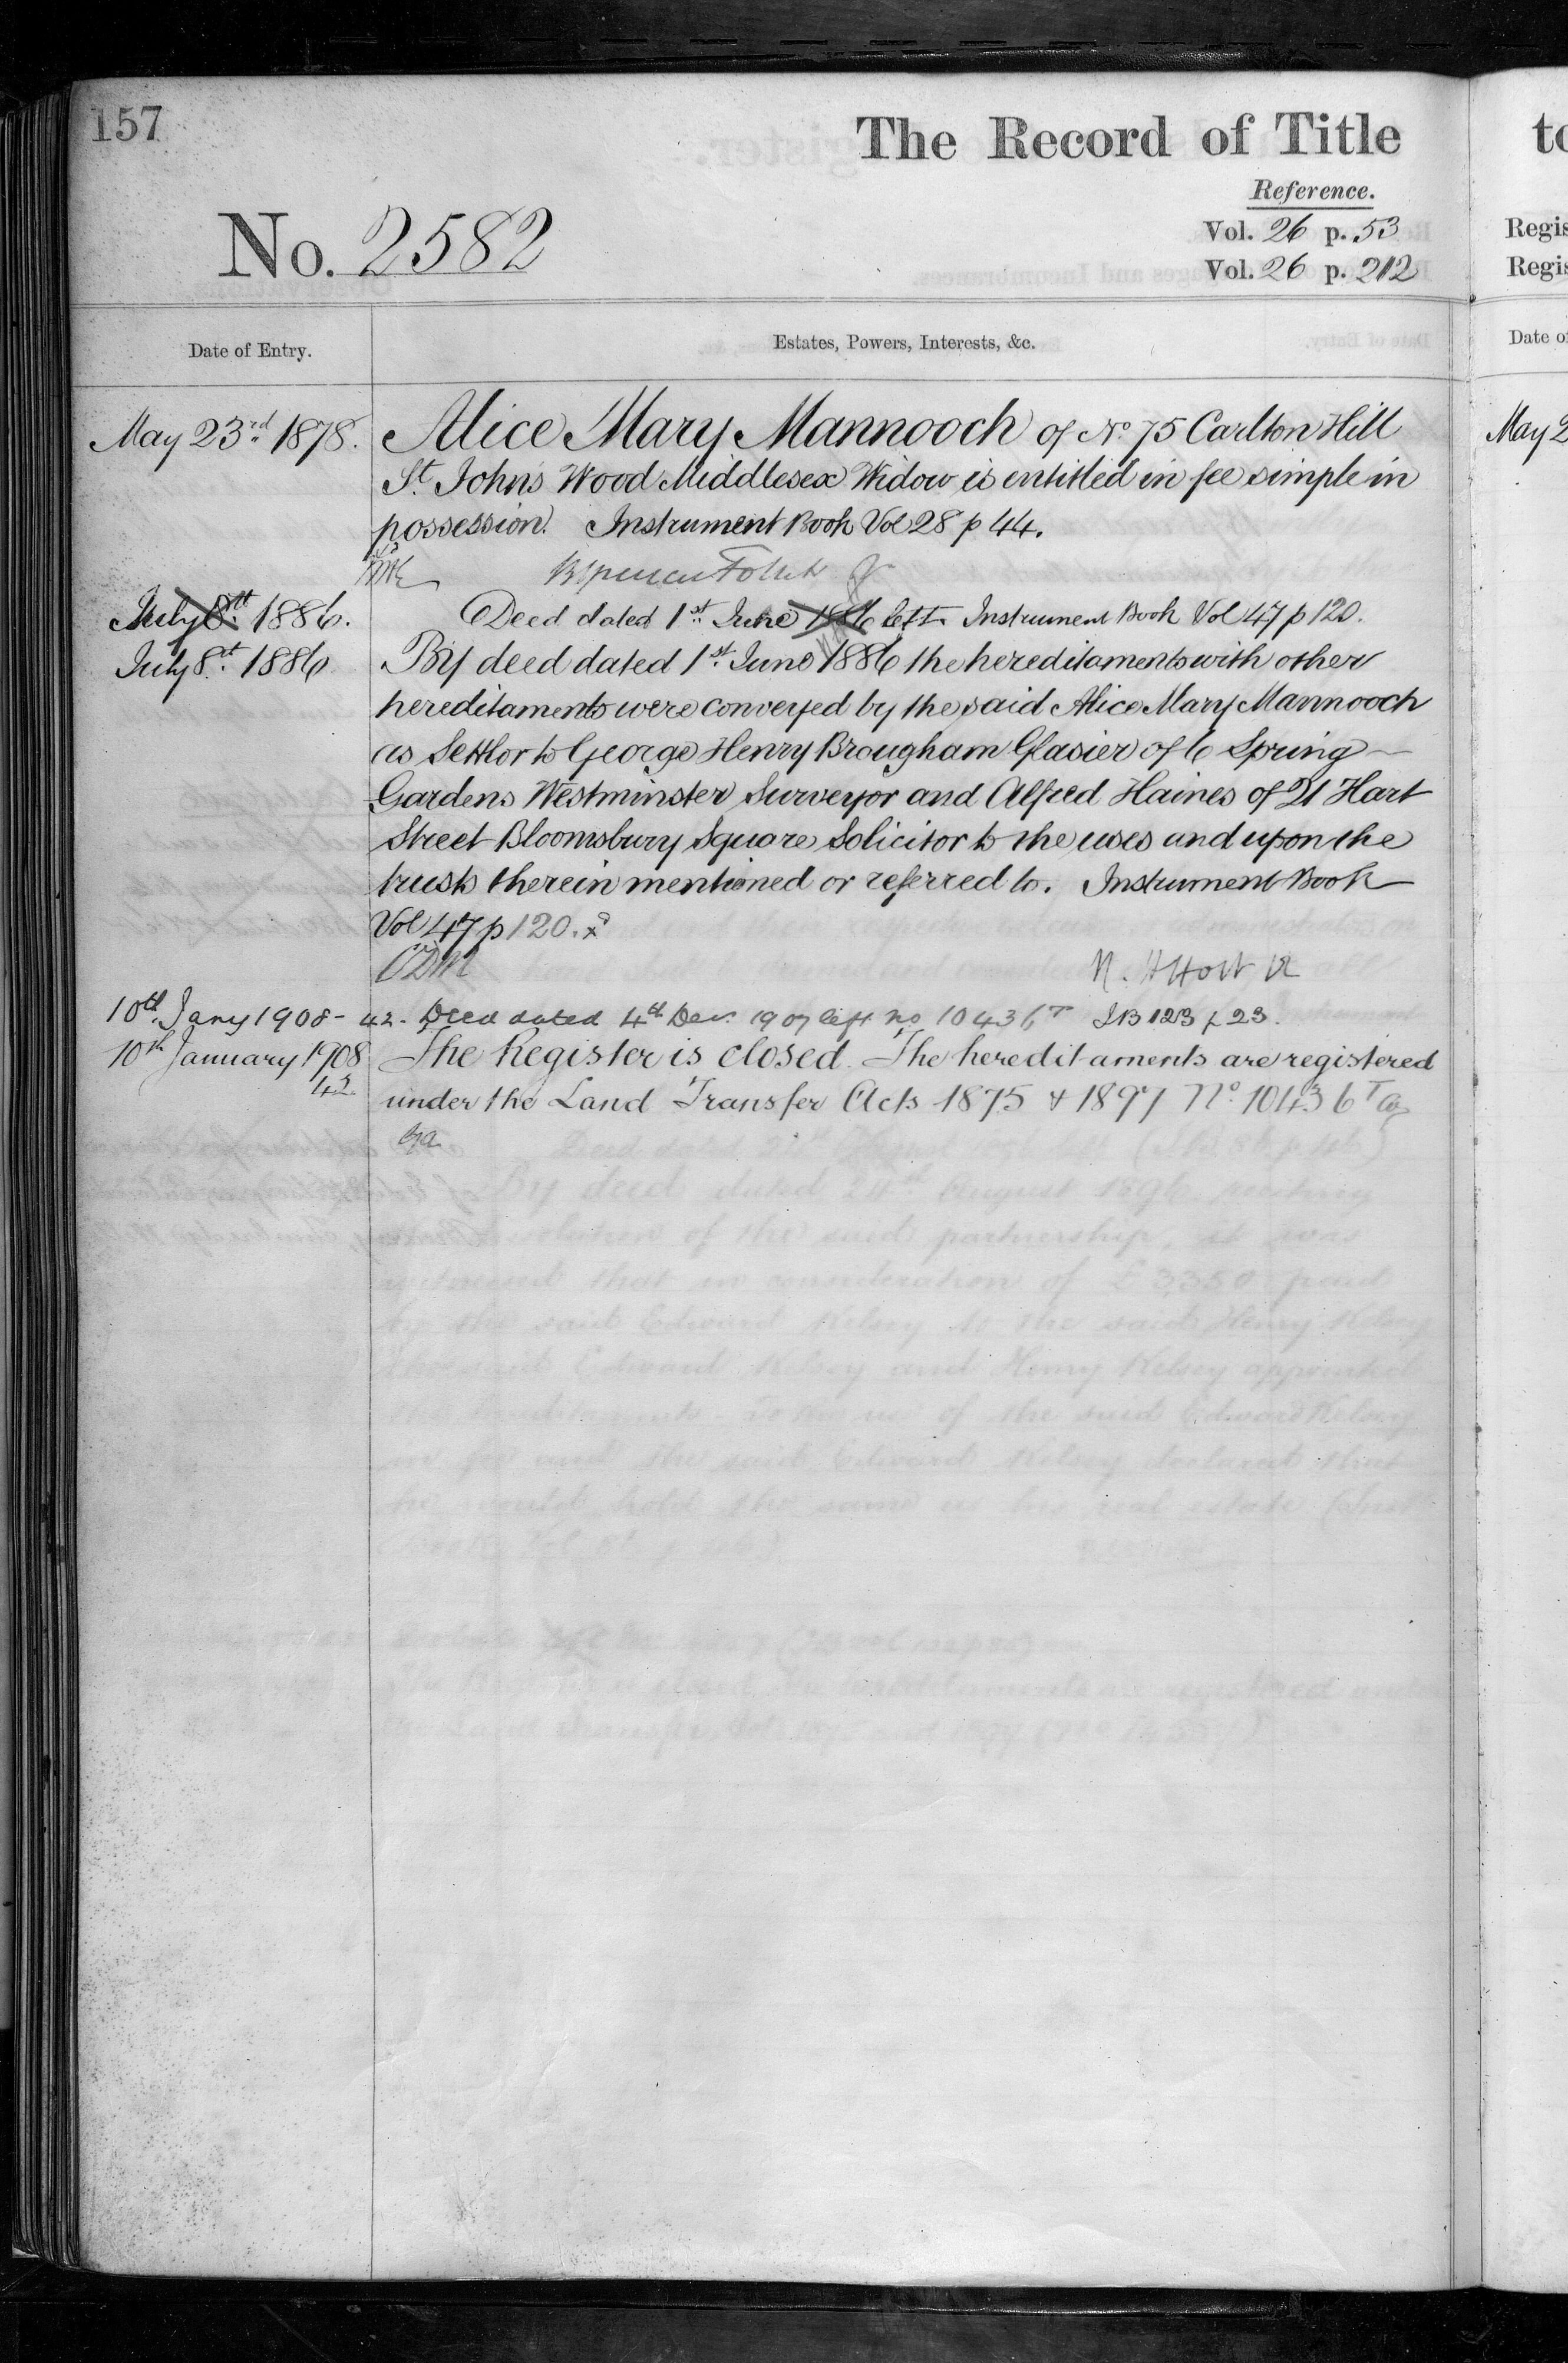 157
The Record of Title
Reference.
No. 2582
Vol. 26 p. 53
Vol. 26 p. 212
Date of Entry.
Estates, Powers, Interests, &c.
May 23rd 1878.
Alice Mary Mannooch of No. 75 Carlton Hill
St. Johns Wood Middlesex Widow is entitled in fee simple in
possession. Instrument Book Vol 28 p 44.
July 8th 1886.
Deed dated 1st June 1886 left Instrument Book Vol 47 p 120.
July 8th 1886
By deed dated 1st June 1886 the hereditaments with other
hereditaments were conveyed by the said Alice Mary Mannooch
as Settlor to George Henry Brougham Glasier of 6 Spring
Gardens Westminster Surveyor and Alfred Haines of 21 Hart
Street Bloomsbury Square Solicitor to the uses and upon the
trusts therein mentioned or referred to. Instrument Book
Vol 47 p 120.
10th Jany 1908 - 42. Deed dated 4th Dec. 1907 left no 10436 T IB 123 p 23.
10th January 1908
42
The Register is closed. The hereditaments are registered
under the Land Transfer Acts 1875 & 1897 No. 10436 T
to
Regis
Regis
Date o
May 2